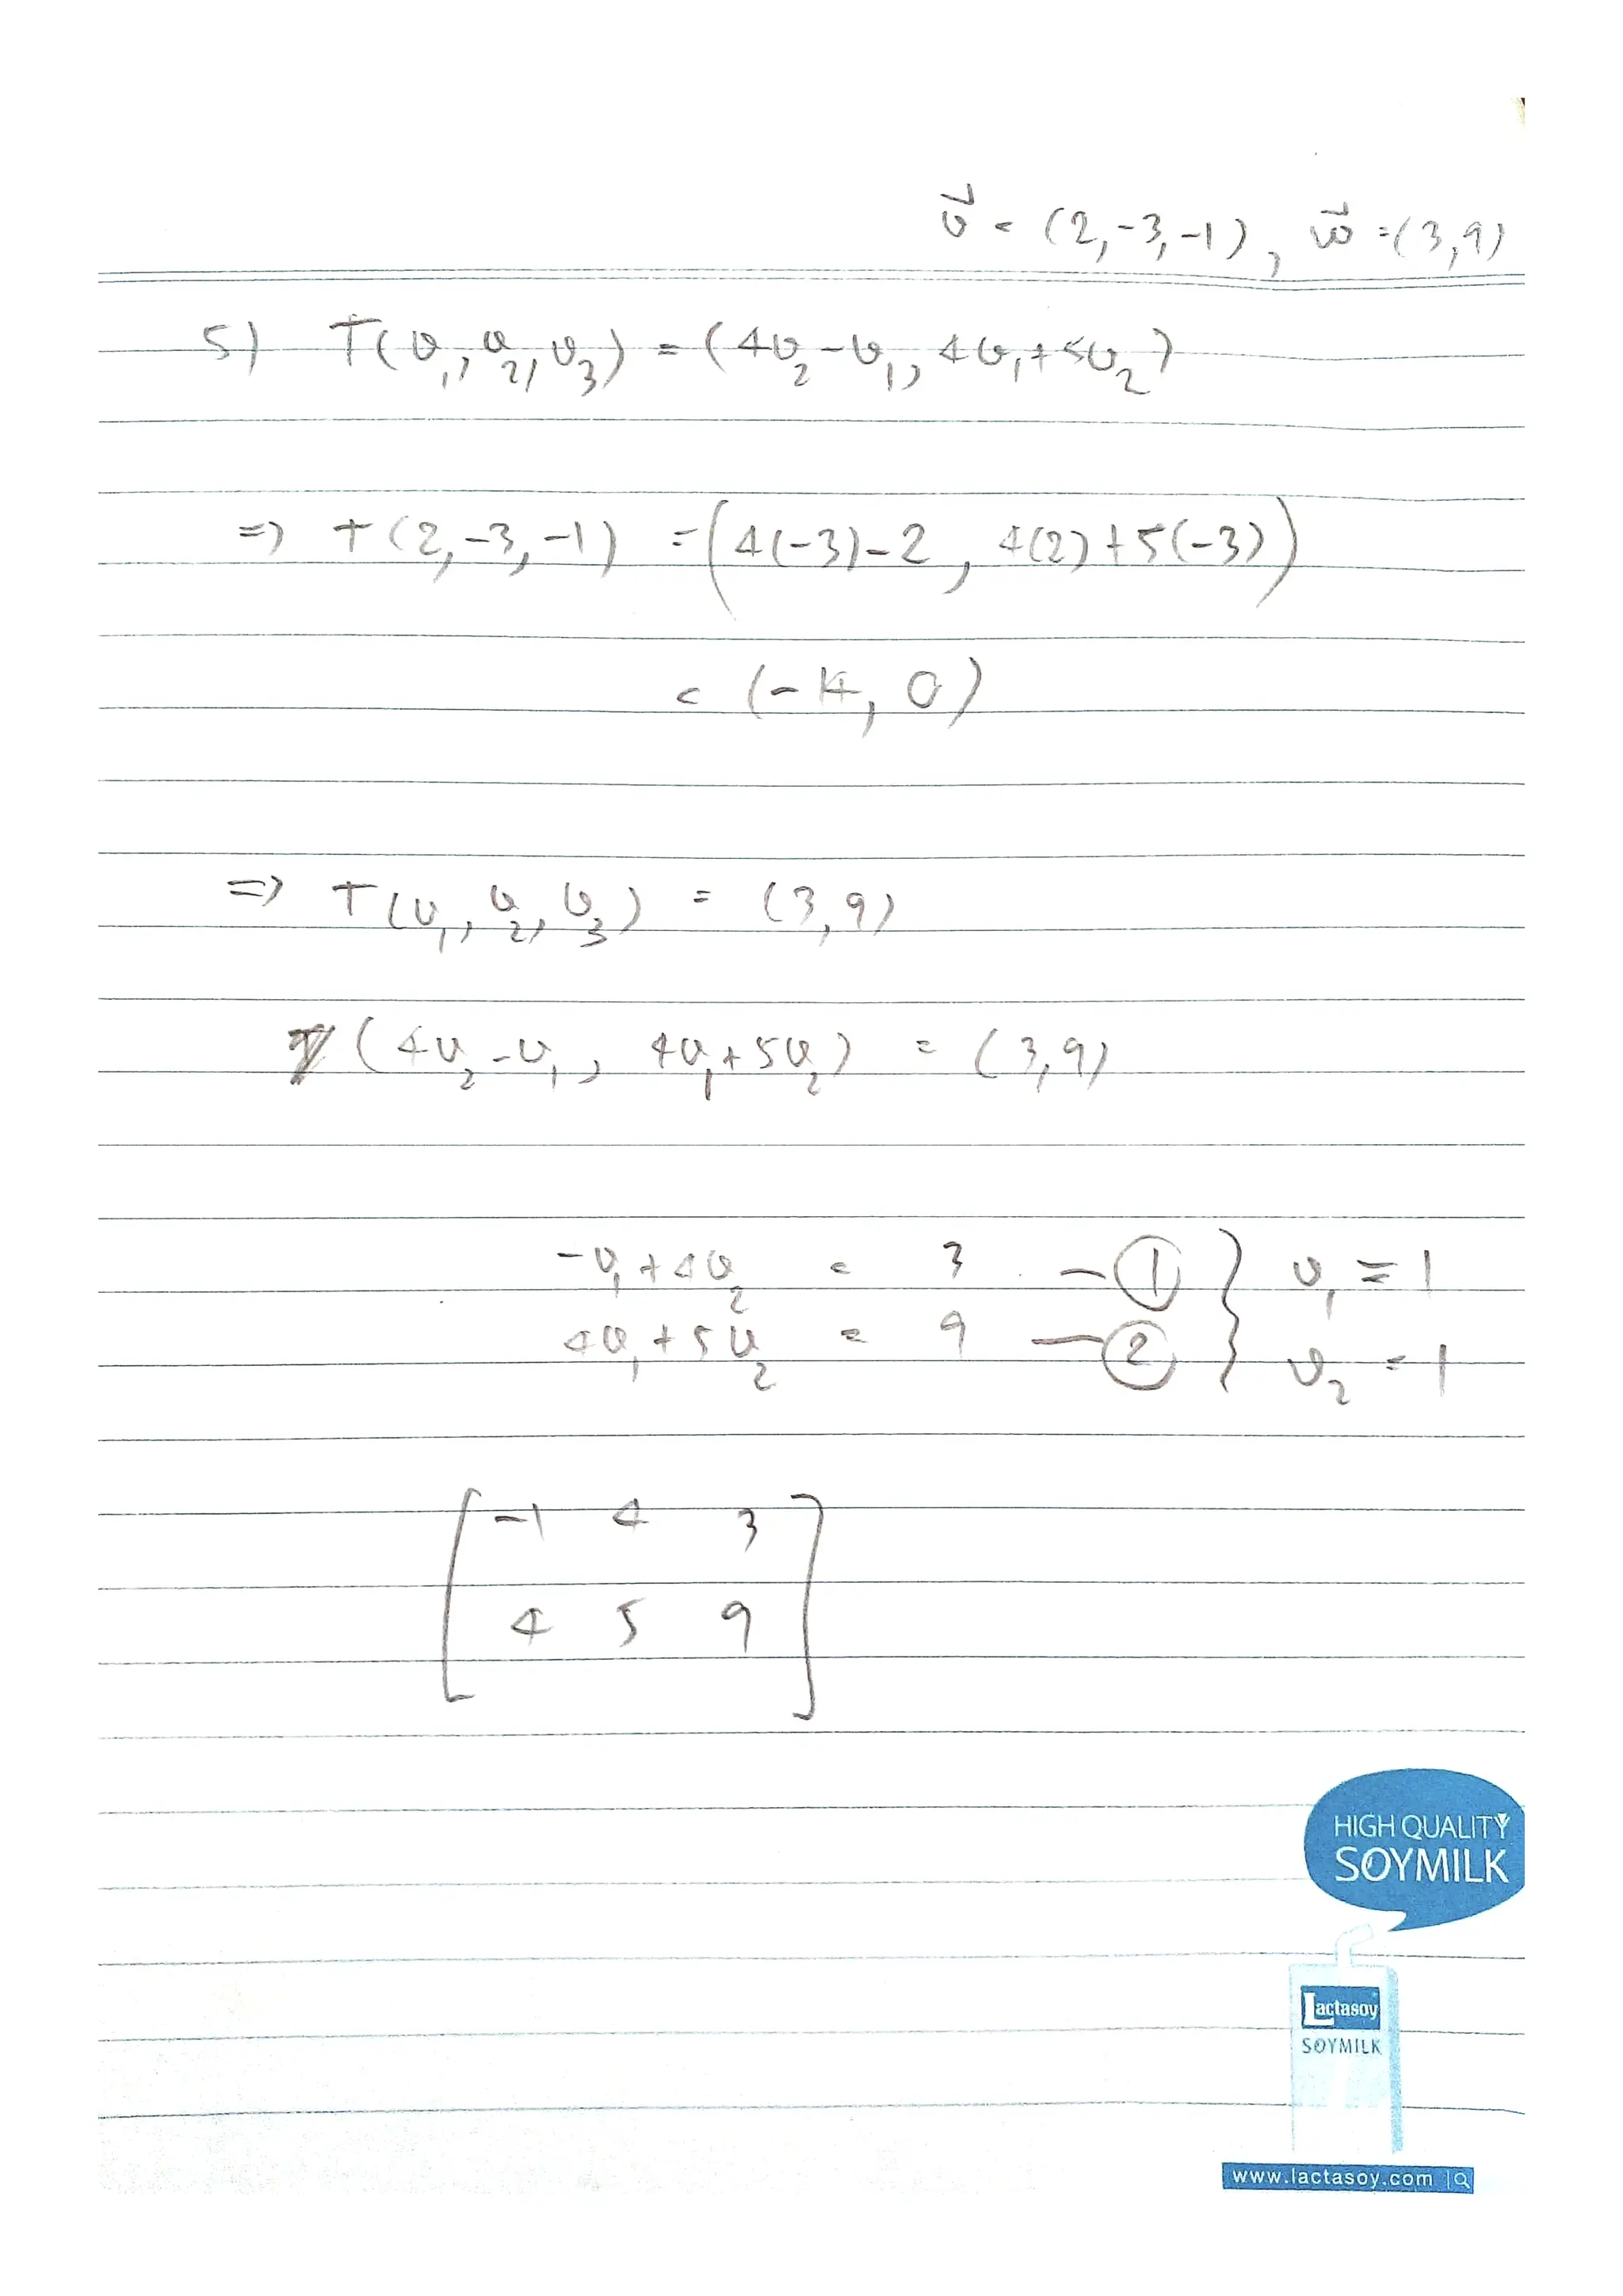 v⃗ = (2,-3,-1), w⃗ = (3,9)
5) T(v₁, v₂, v₃) = (4v₂-v₁, 4v₁+5v₂)
=> T(2,-3,-1) = (4(-3)-2, 4(2)+5(-3))
= (-14, 0)
=> T(v₁, v₂, v₃) = (3,9)
(4v₂-v₁, 4v₁+5v₂) = (3,9)
-v₁+4v₂ = 3 - ① } v₁ = 1
4v₁+5v₂ = 9 - ② } v₂ = 1
[ -1 4 3
4 5 9 ]
HIGH QUALITY
SOYMILK
Lactasoy
SOYMILK
www.lactasoy.com